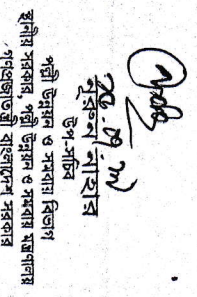 ২৫.০৭.১১
নুরুন নাহার
উপ-সচিব
পল্লী উন্নয়ন ও সমবায় বিভাগ
স্থানীয় সরকার, পল্লী উন্নয়ন ও সমবায় মন্ত্রণালয়
গণপ্রজাতন্ত্রী বাংলাদেশ সরকার